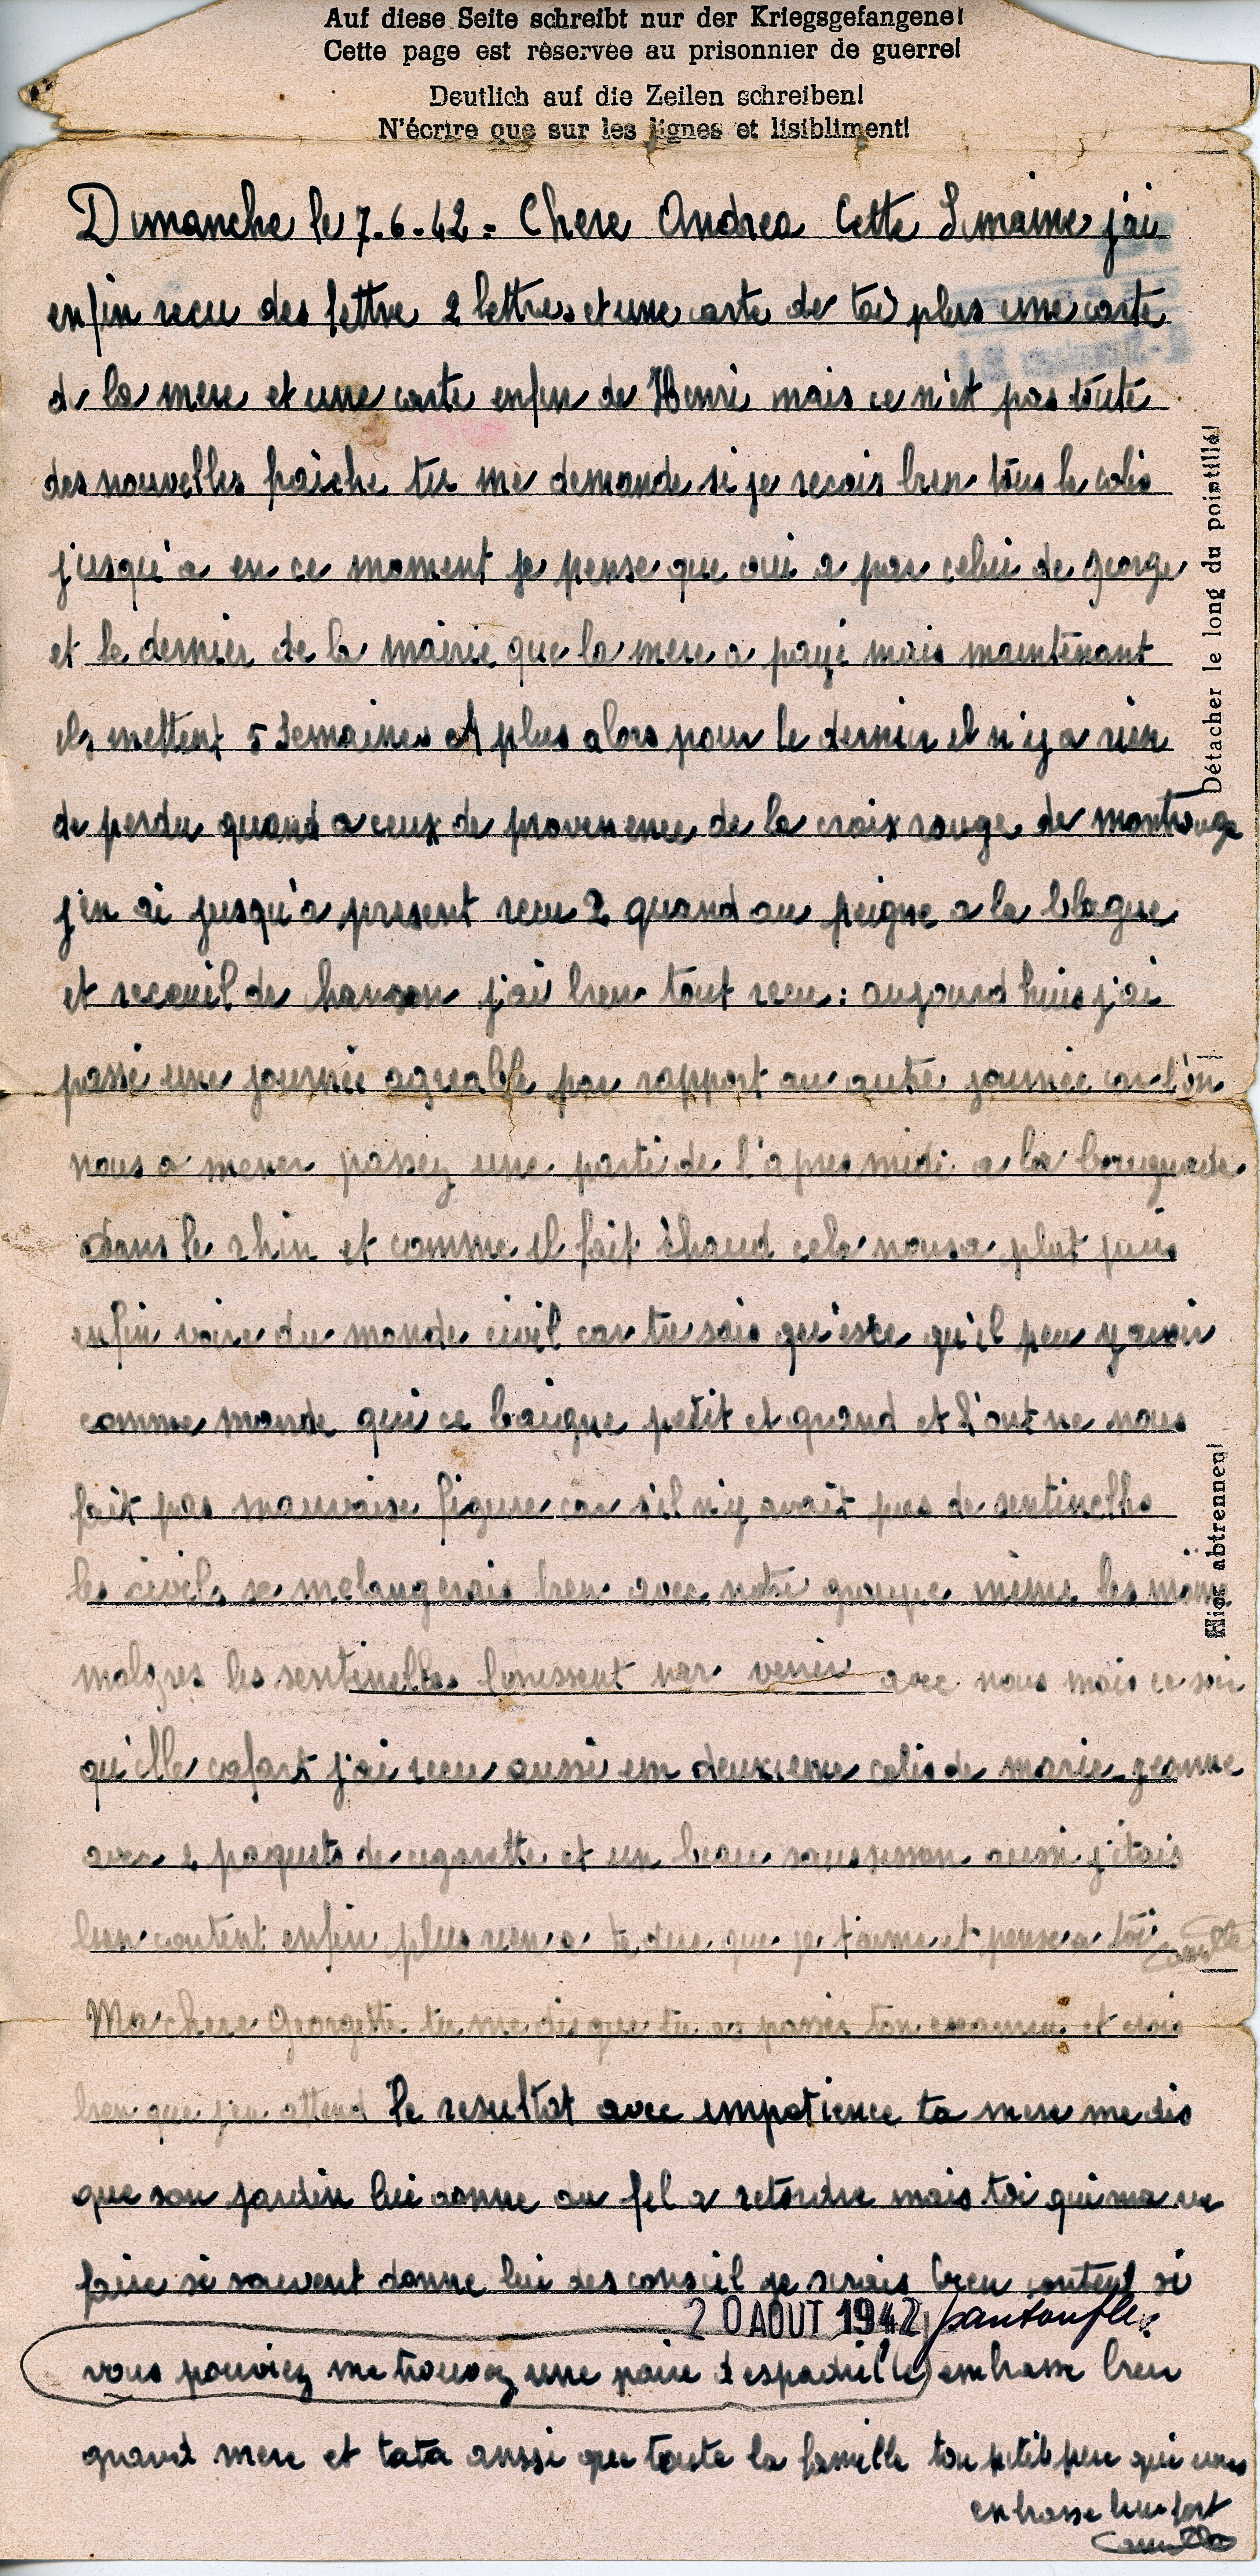 Auf diese Seite schreibt nur der Kriegsgefangene!
Cette page est réservée au prisonnier de guerre!
Deutlich auf die Zeilen schreiben!
N'écrire que sur les lignes et lisibliment!
Dimanche le 7.6.42 = Chere Andrea Cette Semaine j'ai
enfin recu des lettre 2 lettres et une carte de toi plus une carte
de la mere et une carte enfin de Henri mais ce n'et pas toute
des nouvelles fraiche tu me demande si je recois bien tous le colis
jusqu'a en ce moment je pense que oui a par celui de george
et le dernier de la mairie que la mere a payé mais maintenant
ils mettent 5 semaines et plus alors pour le dernier il n'y a rien
de perdu quand a ceux de provenence de la croix rouge de montrouge
j'en ai jusqu'a present recu 2 quand au peigne a la blague
et receuil de hanson j'ai bien tout recu : aujourd huis j'ai
passé une journée agreable par rapport au autre journée car l'on
nous a mener passez une parti de l'apres midi a la beaignade
dans le rhin et comme il fait chaud cela nous a plut puis
enfin voire du monde civil car tu sais qu'esce qu'il peu y avoir
comme monde qui ce baigne petit et grand et l'ont ne nous
fait pas mauvaise figure car s'il n'y avait pas de sentinelles
les civils se melangerais bien avec notre groupe même les mome
malgres les sentinelles finissent par venir avec nous mais ce soir
qu'elle cafart j'ai recu aussi un deuxieme colis de marie-jeanne
avec 2 paquets de cigarette et un beau saussisson aussi j'étais
bien content enfin plus rien a te dire que je t'aime et pense a toi
Camille
Ma chere Georgette tu me dis que tu as passer ton examen et crois
bien que j'en attend le resultat avec impatience ta mere me dis
que son jardin lui donne du fil a retordre mais toi qui ma vu
faire si souvent donne lui des conseil je serais bien content si
20 AOUT 1942 pantoufle
vous pouviez me trouvez une paire d'espadrille embrasse bien
grand mere et tata aussi que toute la famille ton petit pere qui vous
embrasse bien fort
Camille
Détacher le long du pointillé!
Hier abtrennen!